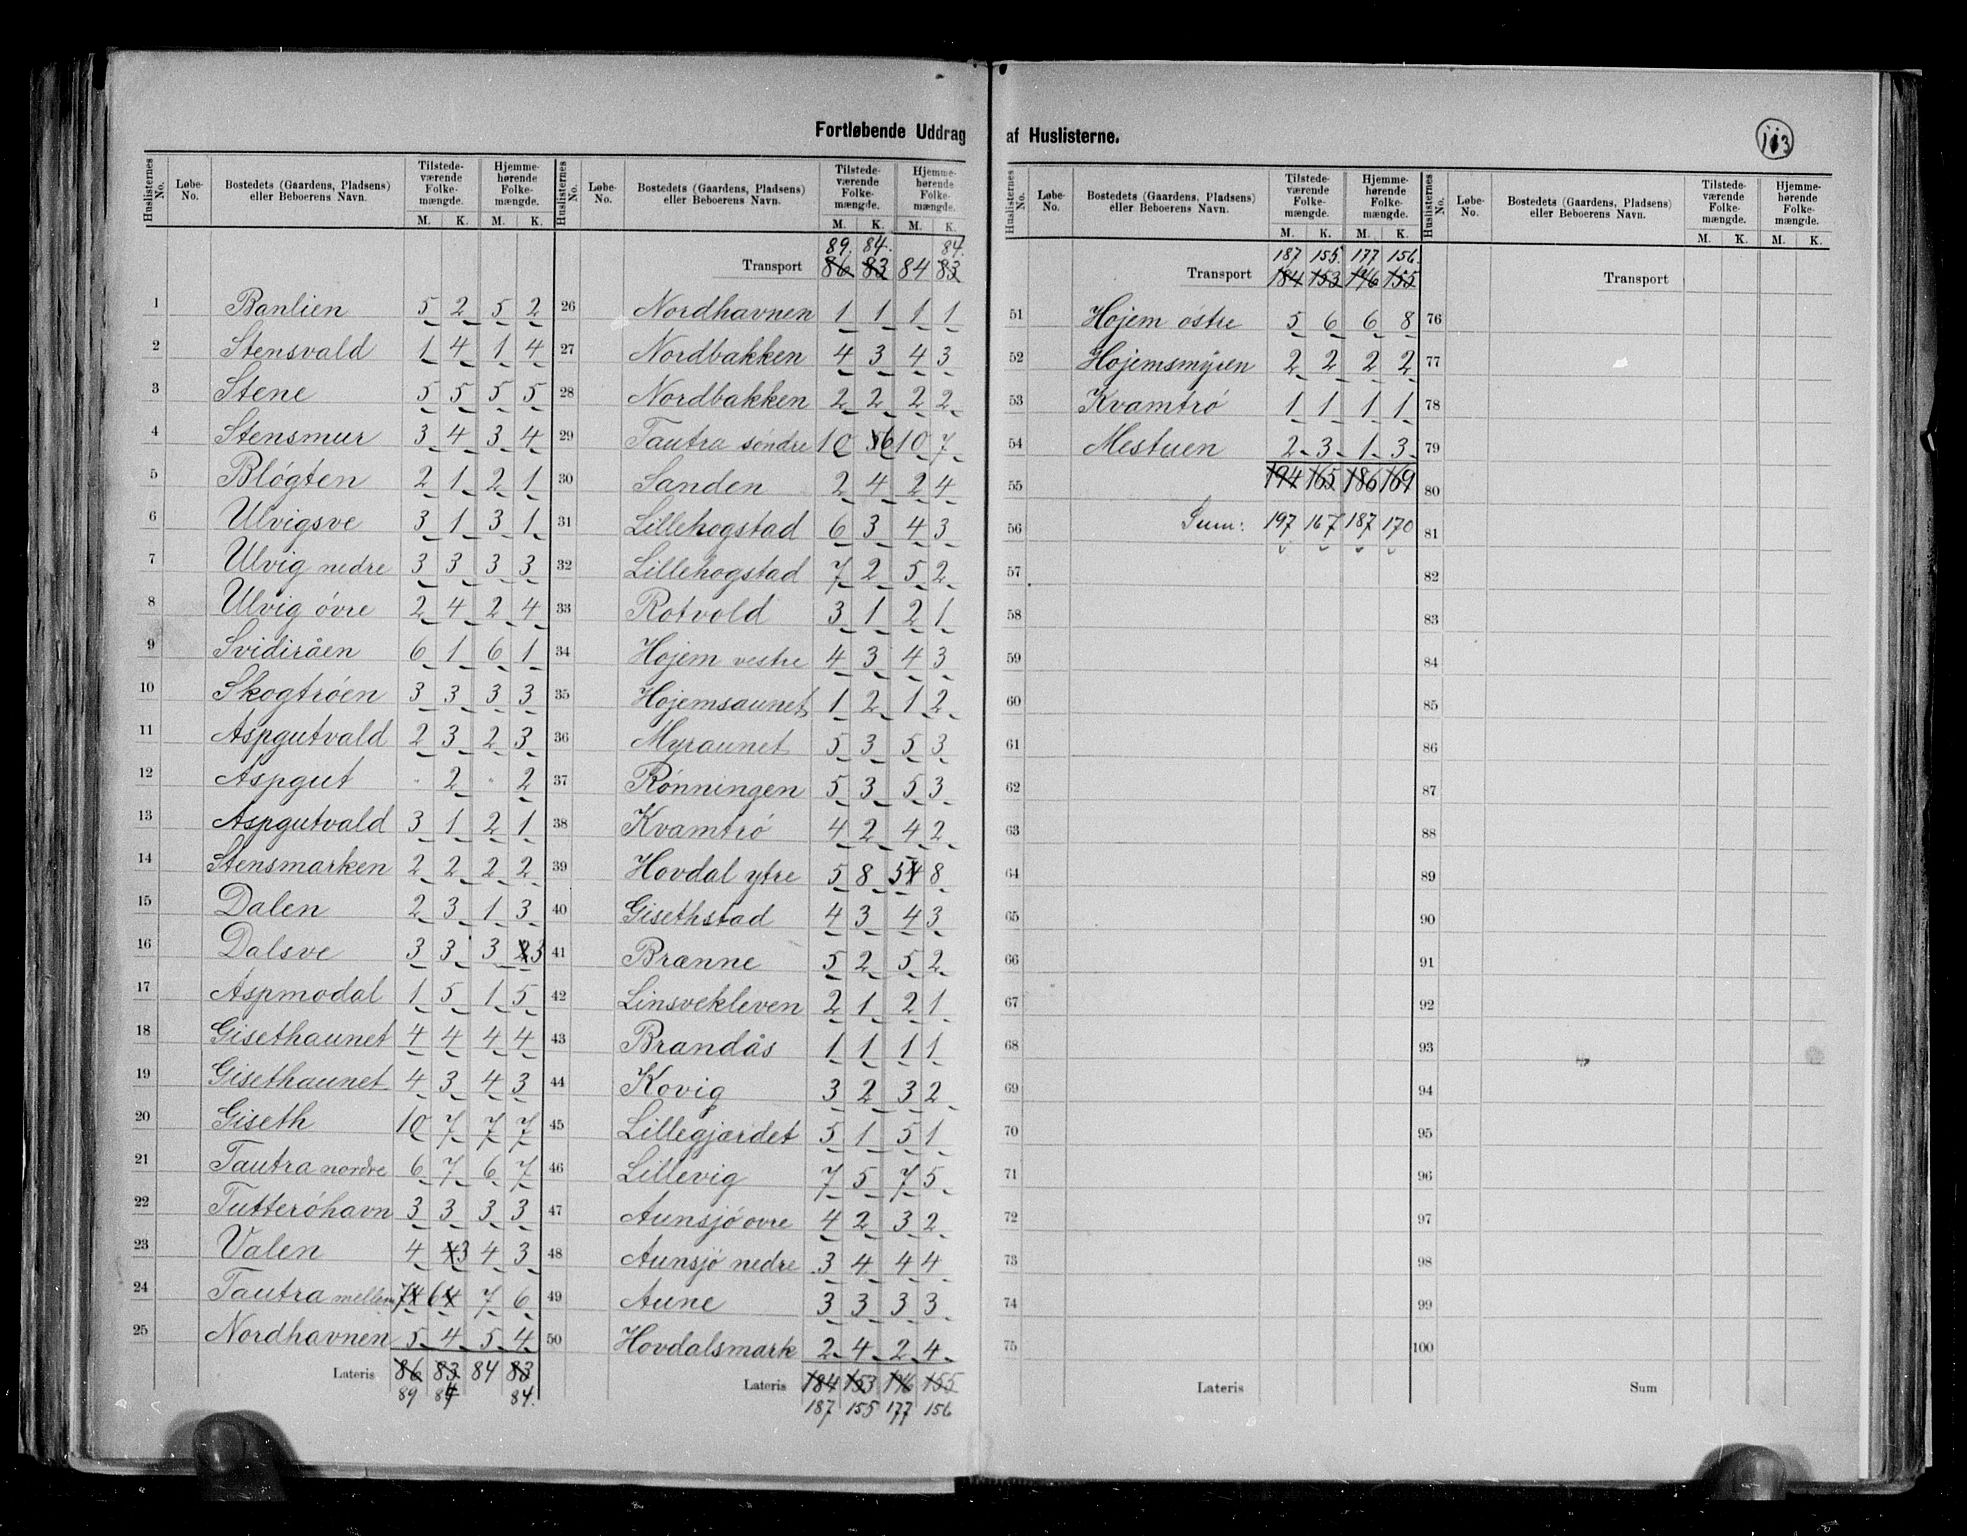 Fortløbende Uddrag af Huslisterne.
113
Huslisternes No. Løbe-No. Bostedets (Gaardens, Pladsens) eller Beboerens Navn. Tilstedeværende Folkemængde. M. K. Hjemmehørende Folkemængde. M. K.
1 Banlien 5 2 5 2
2 Stensvald 1 4 1 4
3 Stene 5 5 5 5
4 Stensmur 3 4 3 4
5 Bløgten 2 1 2 1
6 Ulvigsve 3 1 3 1
7 Ulvig nedre 3 3 3 3
8 Ulvig övre 2 4 2 4
9 Svidiråen 6 1 6 1
10 Skogtröen 3 3 3 3
11 Aspgutvald 2 3 2 3
12 Aspgut " 2 " 2
13 Aspgutvald 3 1 2 1
14 Stensmarken 2 2 2 2
15 Dalen 2 3 1 3
16 Dalsve 3 3 3 2 3
17 Aspmodal 1 5 1 5
18 Gisethaunet 4 4 4 4
19 Gisethaunet 4 3 4 3
20 Giseth 10 7 7 7
21 Tautra nordre 6 7 6 7
22 Tutteröhavn 3 3 3 3
23 Valen 4 4 3 4 3
24 Tautra mellem 7 4 6 4 7 6
25 Nordhavnen 5 4 5 4
Lateris 86 83 84 83
89 84 84.
Huslisternes No. Løbe-No. Bostedets (Gaardens, Pladsens) eller Beboerens Navn. Tilstedeværende Folkemængde. M. K. Hjemmehørende Folkemængde. M. K.
89. 84. 84.
Transport 86 83 84 83
26 Nordhavnen 1 1 1 1
27 Nordbakken 4 3 4 3
28 Nordbakken 2 2 2 2
29 Tautra söndre 10 5 6 10 7
30 Sanden 2 4 2 4
31 Lillehogstad 6 3 4 3
32 Lillehogstad 7 2 5 2
33 Rotvold 3 1 2 1
34 Hojem vestre 4 3 4 3
35 Hojemsaunet 1 2 1 2
36 Myraunet 5 3 5 3
37 Rønningen 5 3 5 3
38 Kvamtrö 4 2 4 2
39 Hovdal ytre 5 8 5 4 8
40 Gisethstad 4 3 4 3
41 Brænne 5 2 5 2
42 Linsvekleven 2 1 2 1
43 Brandås 1 1 1 1
44 Kovig 3 2 3 2
45 Lillegjærdet 5 1 5 1
46 Lillevig 7 5 7 5
47 Aunsjö ovre 4 2 3 2
48 Aunsjö nedre 3 4 4 4
49 Aune 3 3 3 3
50 Hovdalsmark 2 4 2 4
Lateris 184 153 176 155
187 155 177 156
Huslisternes No. Løbe-No. Bostedets (Gaardens, Pladsens) eller Beboerens Navn. Tilstedeværende Folkemængde. M. K. Hjemmehørende Folkemængde. M. K.
187 155. 177 156.
Transport 184 153 176 155
51 Hojem östre 5 6 6 8
52 Hojemsmyren 2 2 2 2
53 Kvamtrö 1 1 1 1
54 Mestuen 2 3 1 3
55 194 165 186 169
56 Sum: 197 167 187 170
57
58
59
60
61
62
63
64
65
66
67
68
69
70
71
72
73
74
75
Lateris
Huslisternes No. Løbe-No. Bostedets (Gaardens, Pladsens) eller Beboerens Navn. Tilstedeværende Folkemængde. M. K. Hjemmehørende Folkemængde. M. K.
Transport
76
77
78
79
80
81
82
83
84
85
86
87
88
89
90
91
92
93
94
95
96
97
98
99
100
Sum